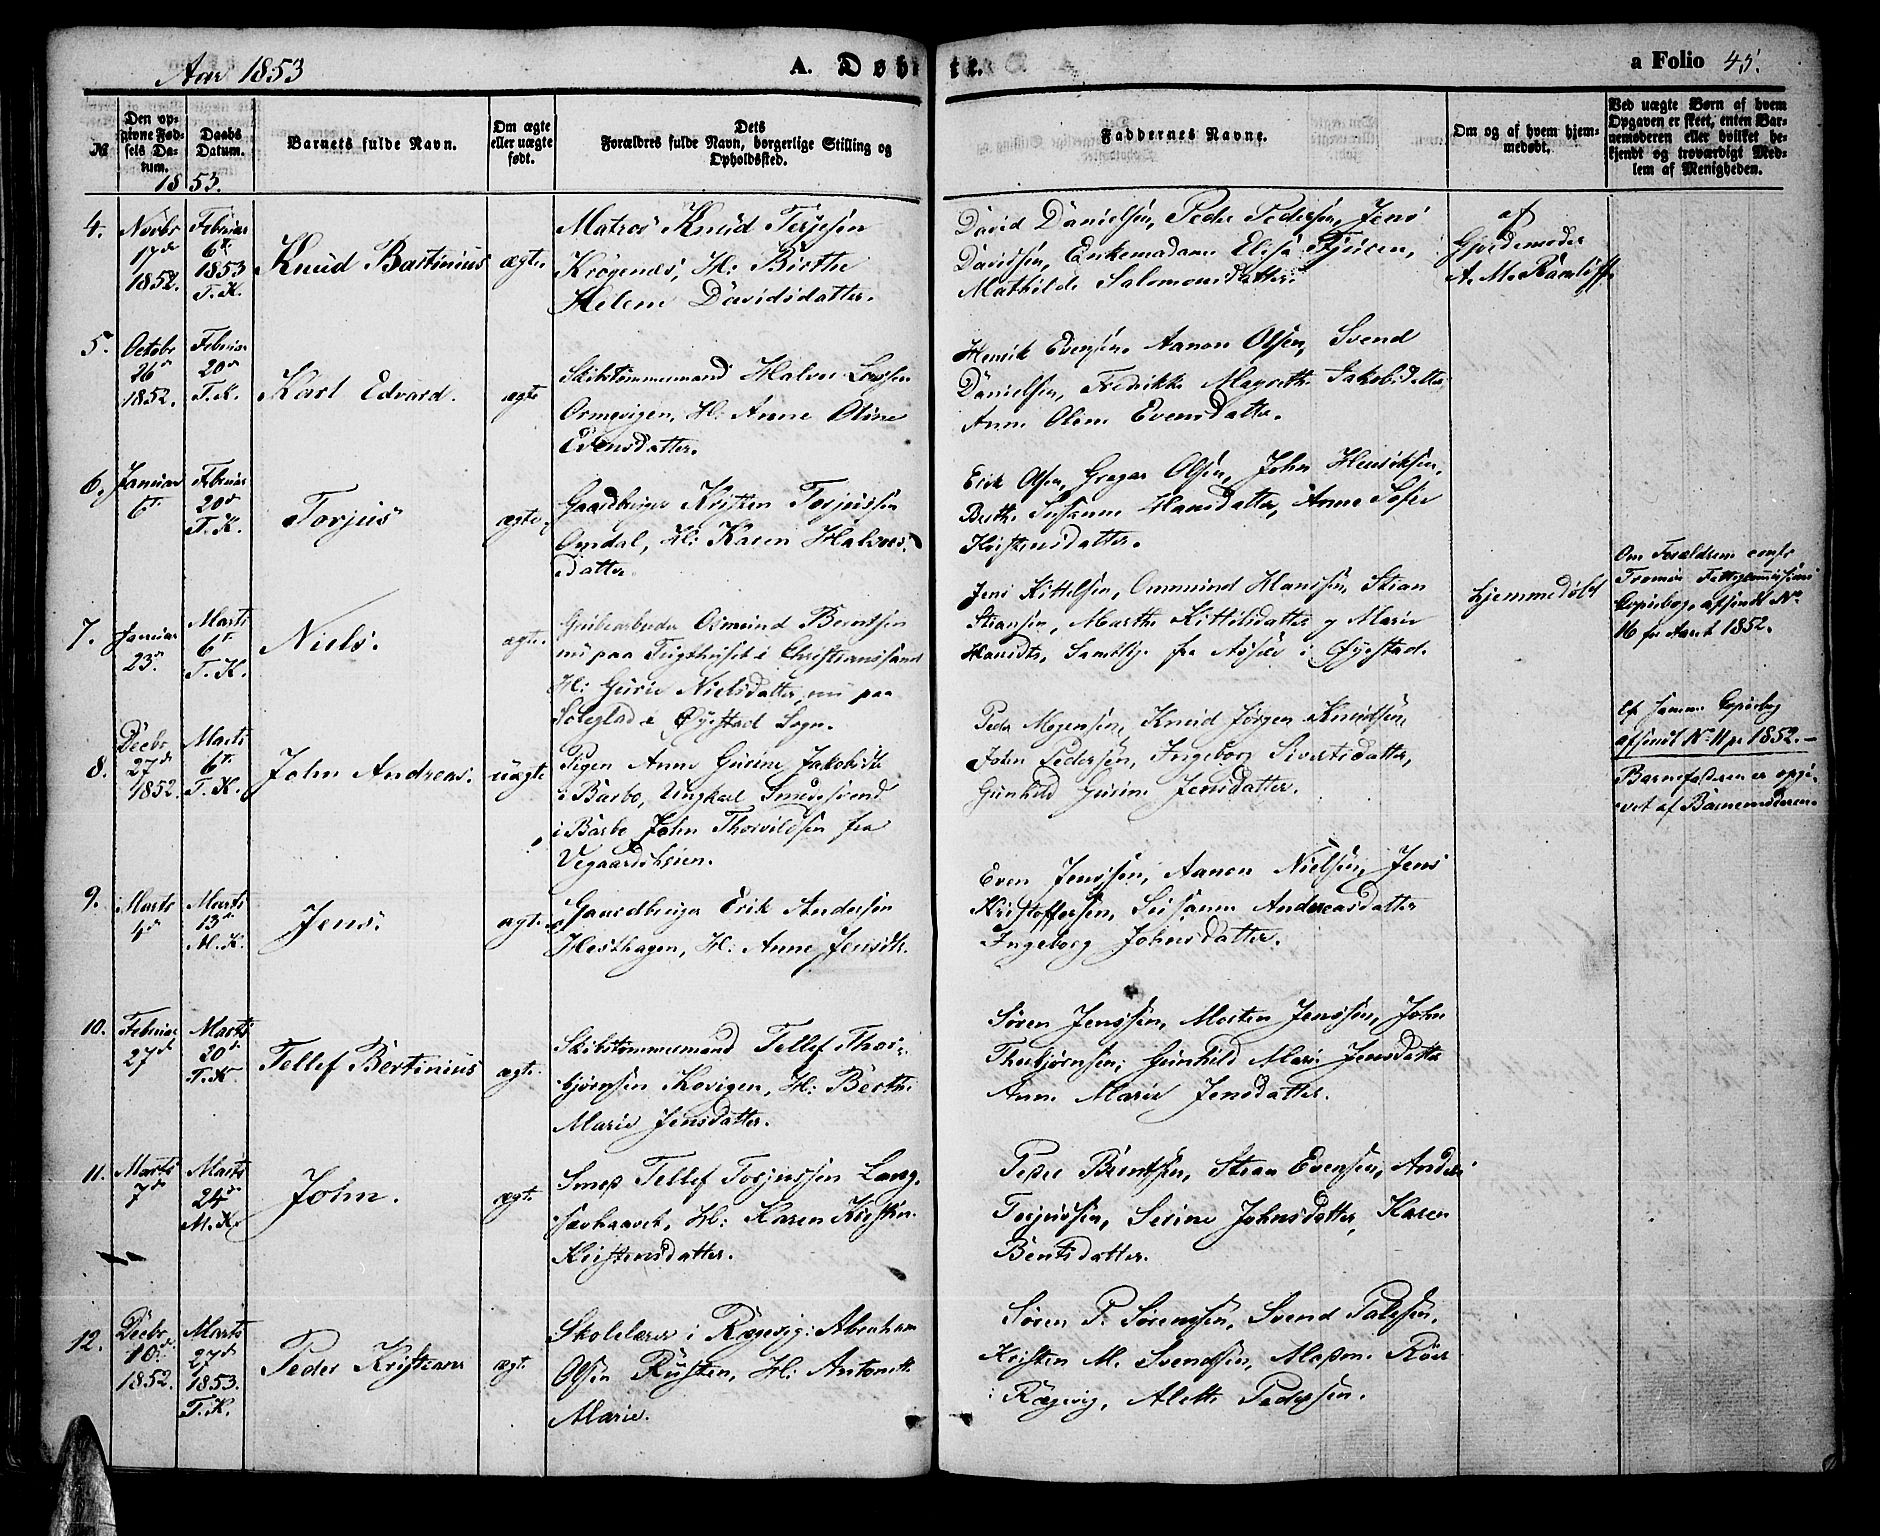 Aar 1853 A. Døbte. a Folio 45.
№ Den opgivne Fødsels Datum. Daabs Datum. Barnets fulde Navn. Om ægte eller uægte født. Dets Forældres fulde Navn, borgerlige Stilling og Opholdssted. Faddernes Navne. Om og af hvem hjemmedøbt. Ved uægte Børn af hvem Opgaven er skeet, enten Barnemoderen eller hvilket bekjendt og troværdigt Medlem af Menigheden.
1853.
4. Novbr 17de 1852. Februar 6te 1853 T. K. Knud Bartinius ægte
Matros Knud Terjesen
Krøgenæs, H: Birthe
Helene Davidsdatter.
David Danielsen, Peder Pedersen, Jens
Davidsen, Enkemadame Elise
Mathilde Salomonsdatter.
af
Gjordemoder
A. M.
5. October 26de 1852. Februar 20de T. K. Karl Edvard. ægte
Skibstømmermand Halvor Larssen
Ormevigen, H: Anne Oline
Evensdatter.
Henrik Evensen, Aanon Olsen, Svend
Danielsen, Fredrikke Magrethe Jakobsdatter
Anne Olene Evensdatter.
6. Januar 6te Februar 20de T. K. Torjus ægte
Gaardbruger Kristen Torjussen
Omdal, H: Karen Halvors-
datter
Erik Olsen, Gregar Olsen, John Henriksen,
Berthe Susanne Hansdatter, Anne Sofie
Kristensdatter.
7. Januar 23de Marts 6te T. K. Niels. ægte
Grubearbeider Osmund Berntsen
nu paa Tugthuset i Christianssand
H: Gurie Nielsdatter, nu paa
Soleglad i Øyestad Sogn.
Jens Kittelsen, Ommund Hanssen, Stian
Stiansen, Marthe Kittelsdatter og Marie
Hansdtr, Samtlige fra i Øyestad.
hjemmedøbt
Om Forældrene confr
Tromø Fattigcommissions
Copiebog, afsendt No
16 for Aaret 1852.
8. Decbr 27de 1852. Marts 6te T. K. John Andreas. uægte
Pigen Anne Gurine Jakobsdtr
i Barbo, Ungkarl Smedesvend
i Barbo John Thorvildsen fra
Vegaardsheien.
Peder Mogensen, Knud Jørgen Knudsen,
John Pedersen, Ingeborg Sivertsdatter,
Gunhild Gurine Jensdatter.
Cf. samme Copiebog
afsendt No 11 pr 1852.
Barnefaderen er opgi-
vet af Barnemoderen.
9. Marts 4de Marts 13de M. K. Jens. ægte
Gaardbruger Erik Andersen
Hesthagen, H: Anne Jensdtr.
Even Jenssen, Aanon Nielsen, Jens
Kristoffersen, Susanne Andreasdatter
Ingeborg Johnsdatter.
10. Februar 27de Marts 20de T. K. Tellef Bertinius ægte
Skibstømmermand Tellef Thor-
bjørnsen Kovigen, H: Berthe
Marie Jensdatter.
Søren Jenssen, Morten Jenssen, John
Thorbjørnsen, Gunhild Marie Jensdatter
Anne Marie Jensdatter.
11. Marts 7de Marts 24de M. K. John. ægte
Smed Tellef Torjussen Lang-
sævhaavet, H: Karen Kirstine
Kristensdatter.
Peder Berntsen, Stian Evensen, Anders
Torjussen, Serine Johnsdatter, Karen
Berntsdatter.
12. Decbr 10de 1852. Marts 27de 1853. T. K. Peder Kristians ægte
Skolelærer i Rægevig: Abraham
Olsen Rusten, H: Antonette
Marie.
Søren P. Sørensen, Svend Palesen,
Kristen M. Svendsen, Madme Roer
i Rægevig, Alette Pedersen.